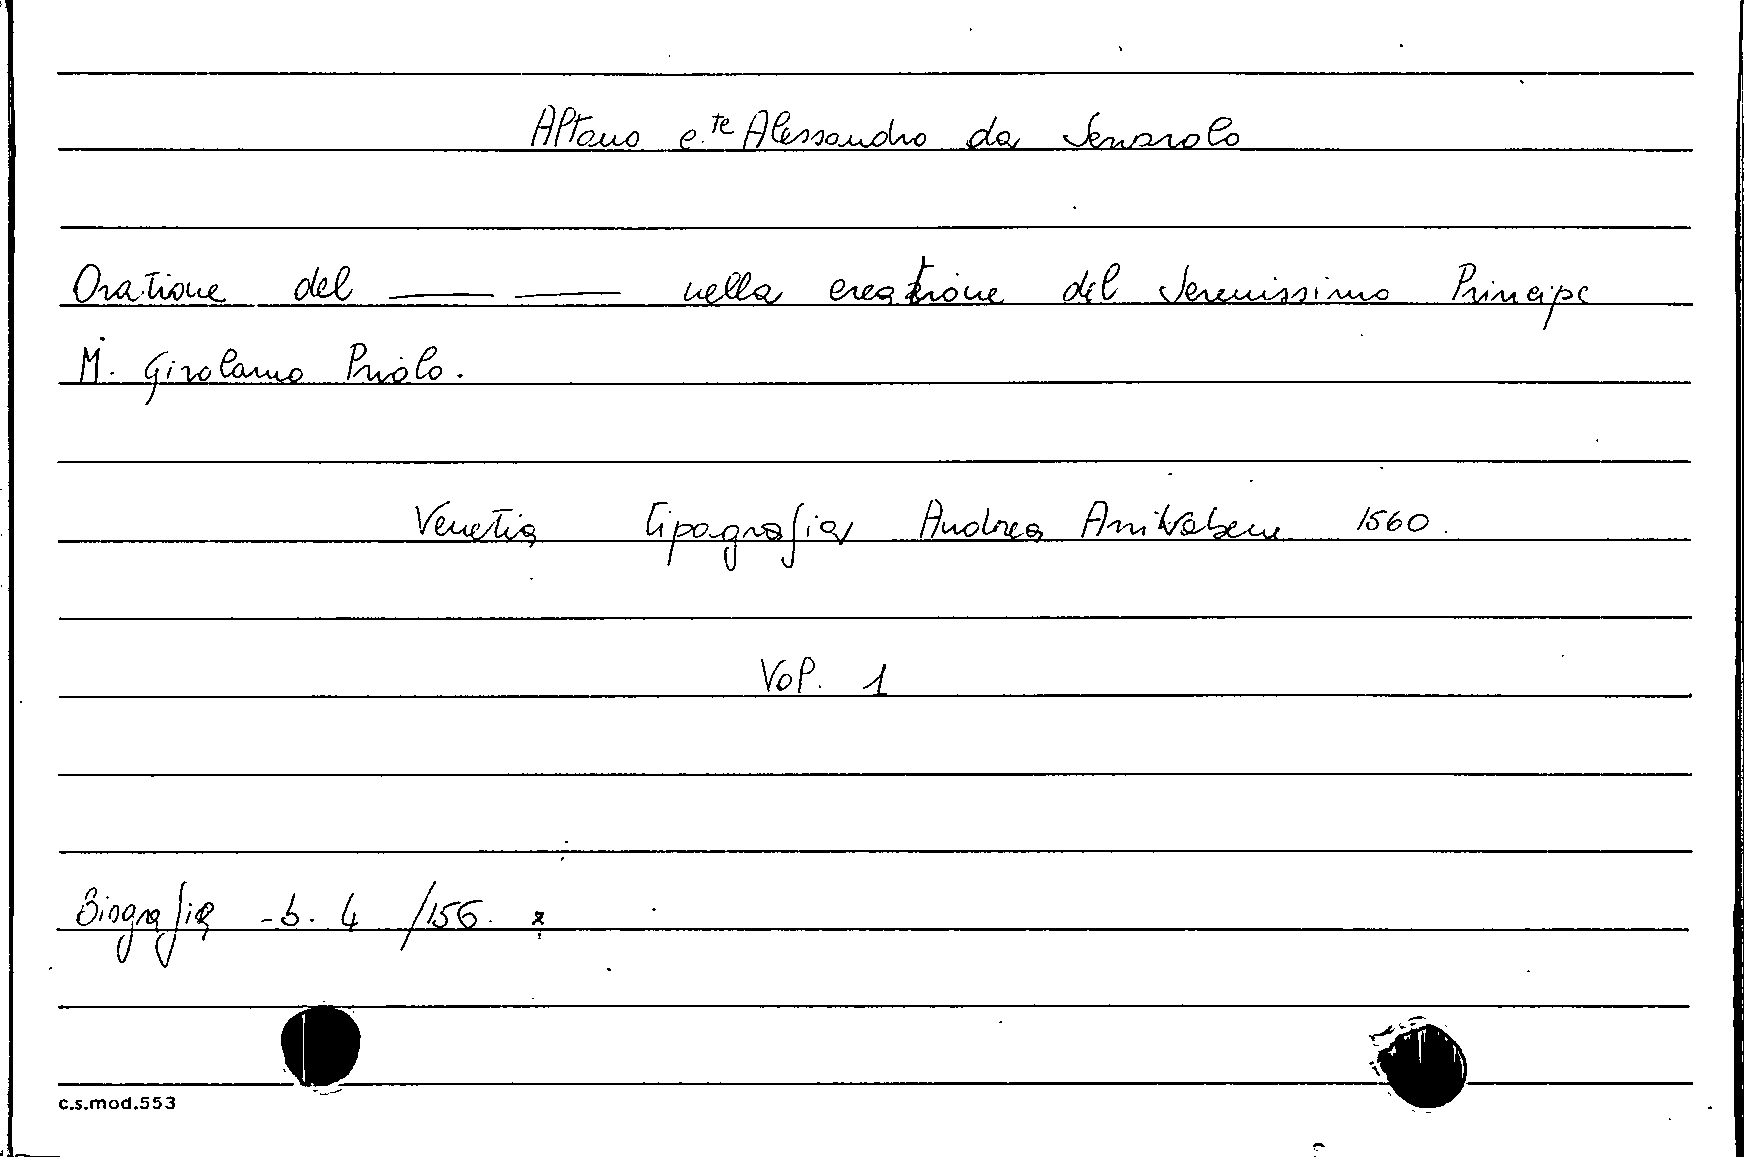 Altano c.te Alessandro da Servarolo
Oratione del —— —— nella creatione del Serenissimo Principe
M. Girolamo Priolo.
Venetia tipografia Andrea Arrivabene 1560.
Vol. 1
Biografia - b. 4 /156.
c.s.mod.553